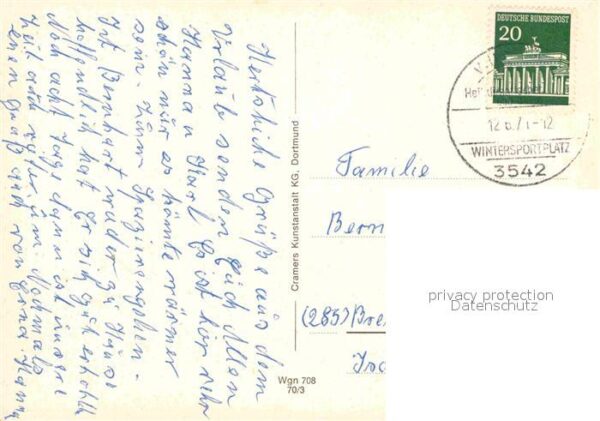 Herzliche Grüße aus dem
Urlaub senden Euch Allen
Hanna u Karl Es ist hier sehr
schön nur es könnte wärmer
sein. zum Spazierengehen.
Ist Bernhart wieder zu Hause
hoffendlich hat Er sich gut erhohlt
Noch acht Tage dann ist unsere
Zeit
um. Nochmals
einen Gruß auch von
Cramers Kunstanstalt KG, Dortmund
Wgn 708
70/3
DEUTSCHE BUNDESPOST
20
12.6.71-12
WINTERSPORTPLATZ
3542
Familie
Bern
(285) Bre
privacy protection
Datenschutz